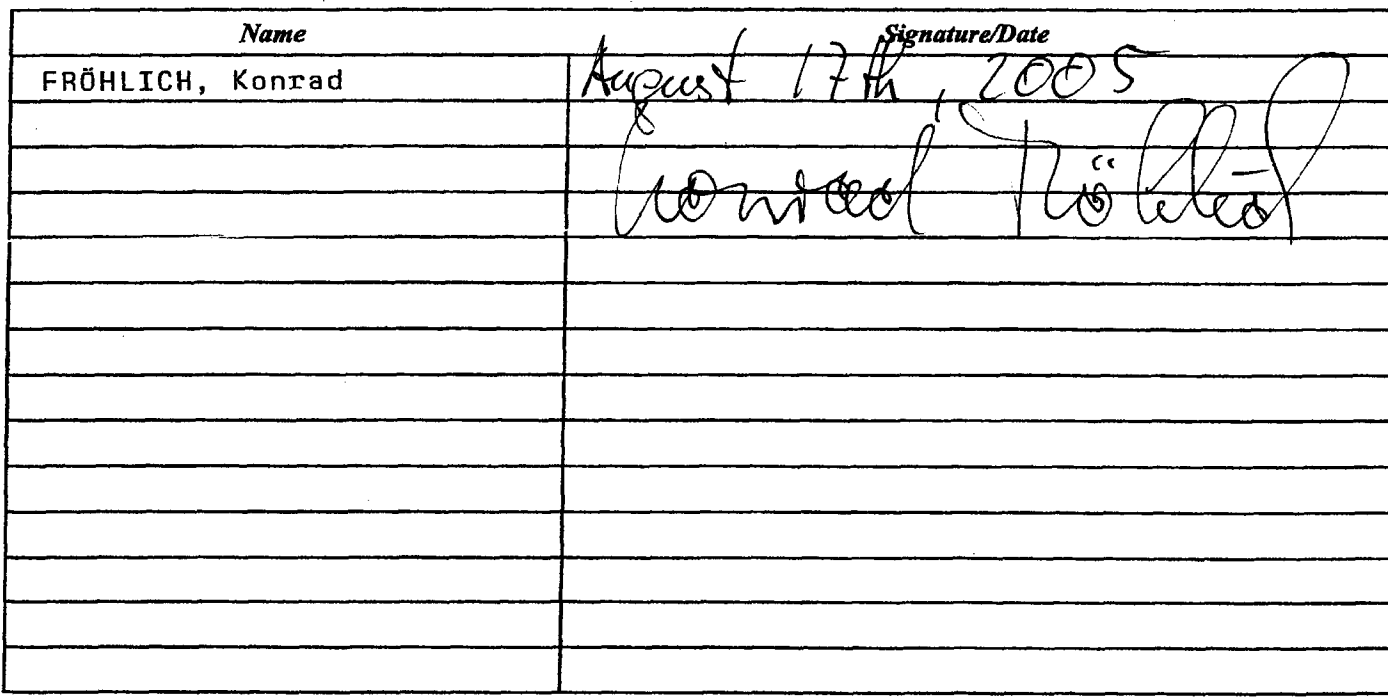 Name Signature/Date
FRÖHLICH, Konrad August 17th, 2005
Konrad Fröhlich